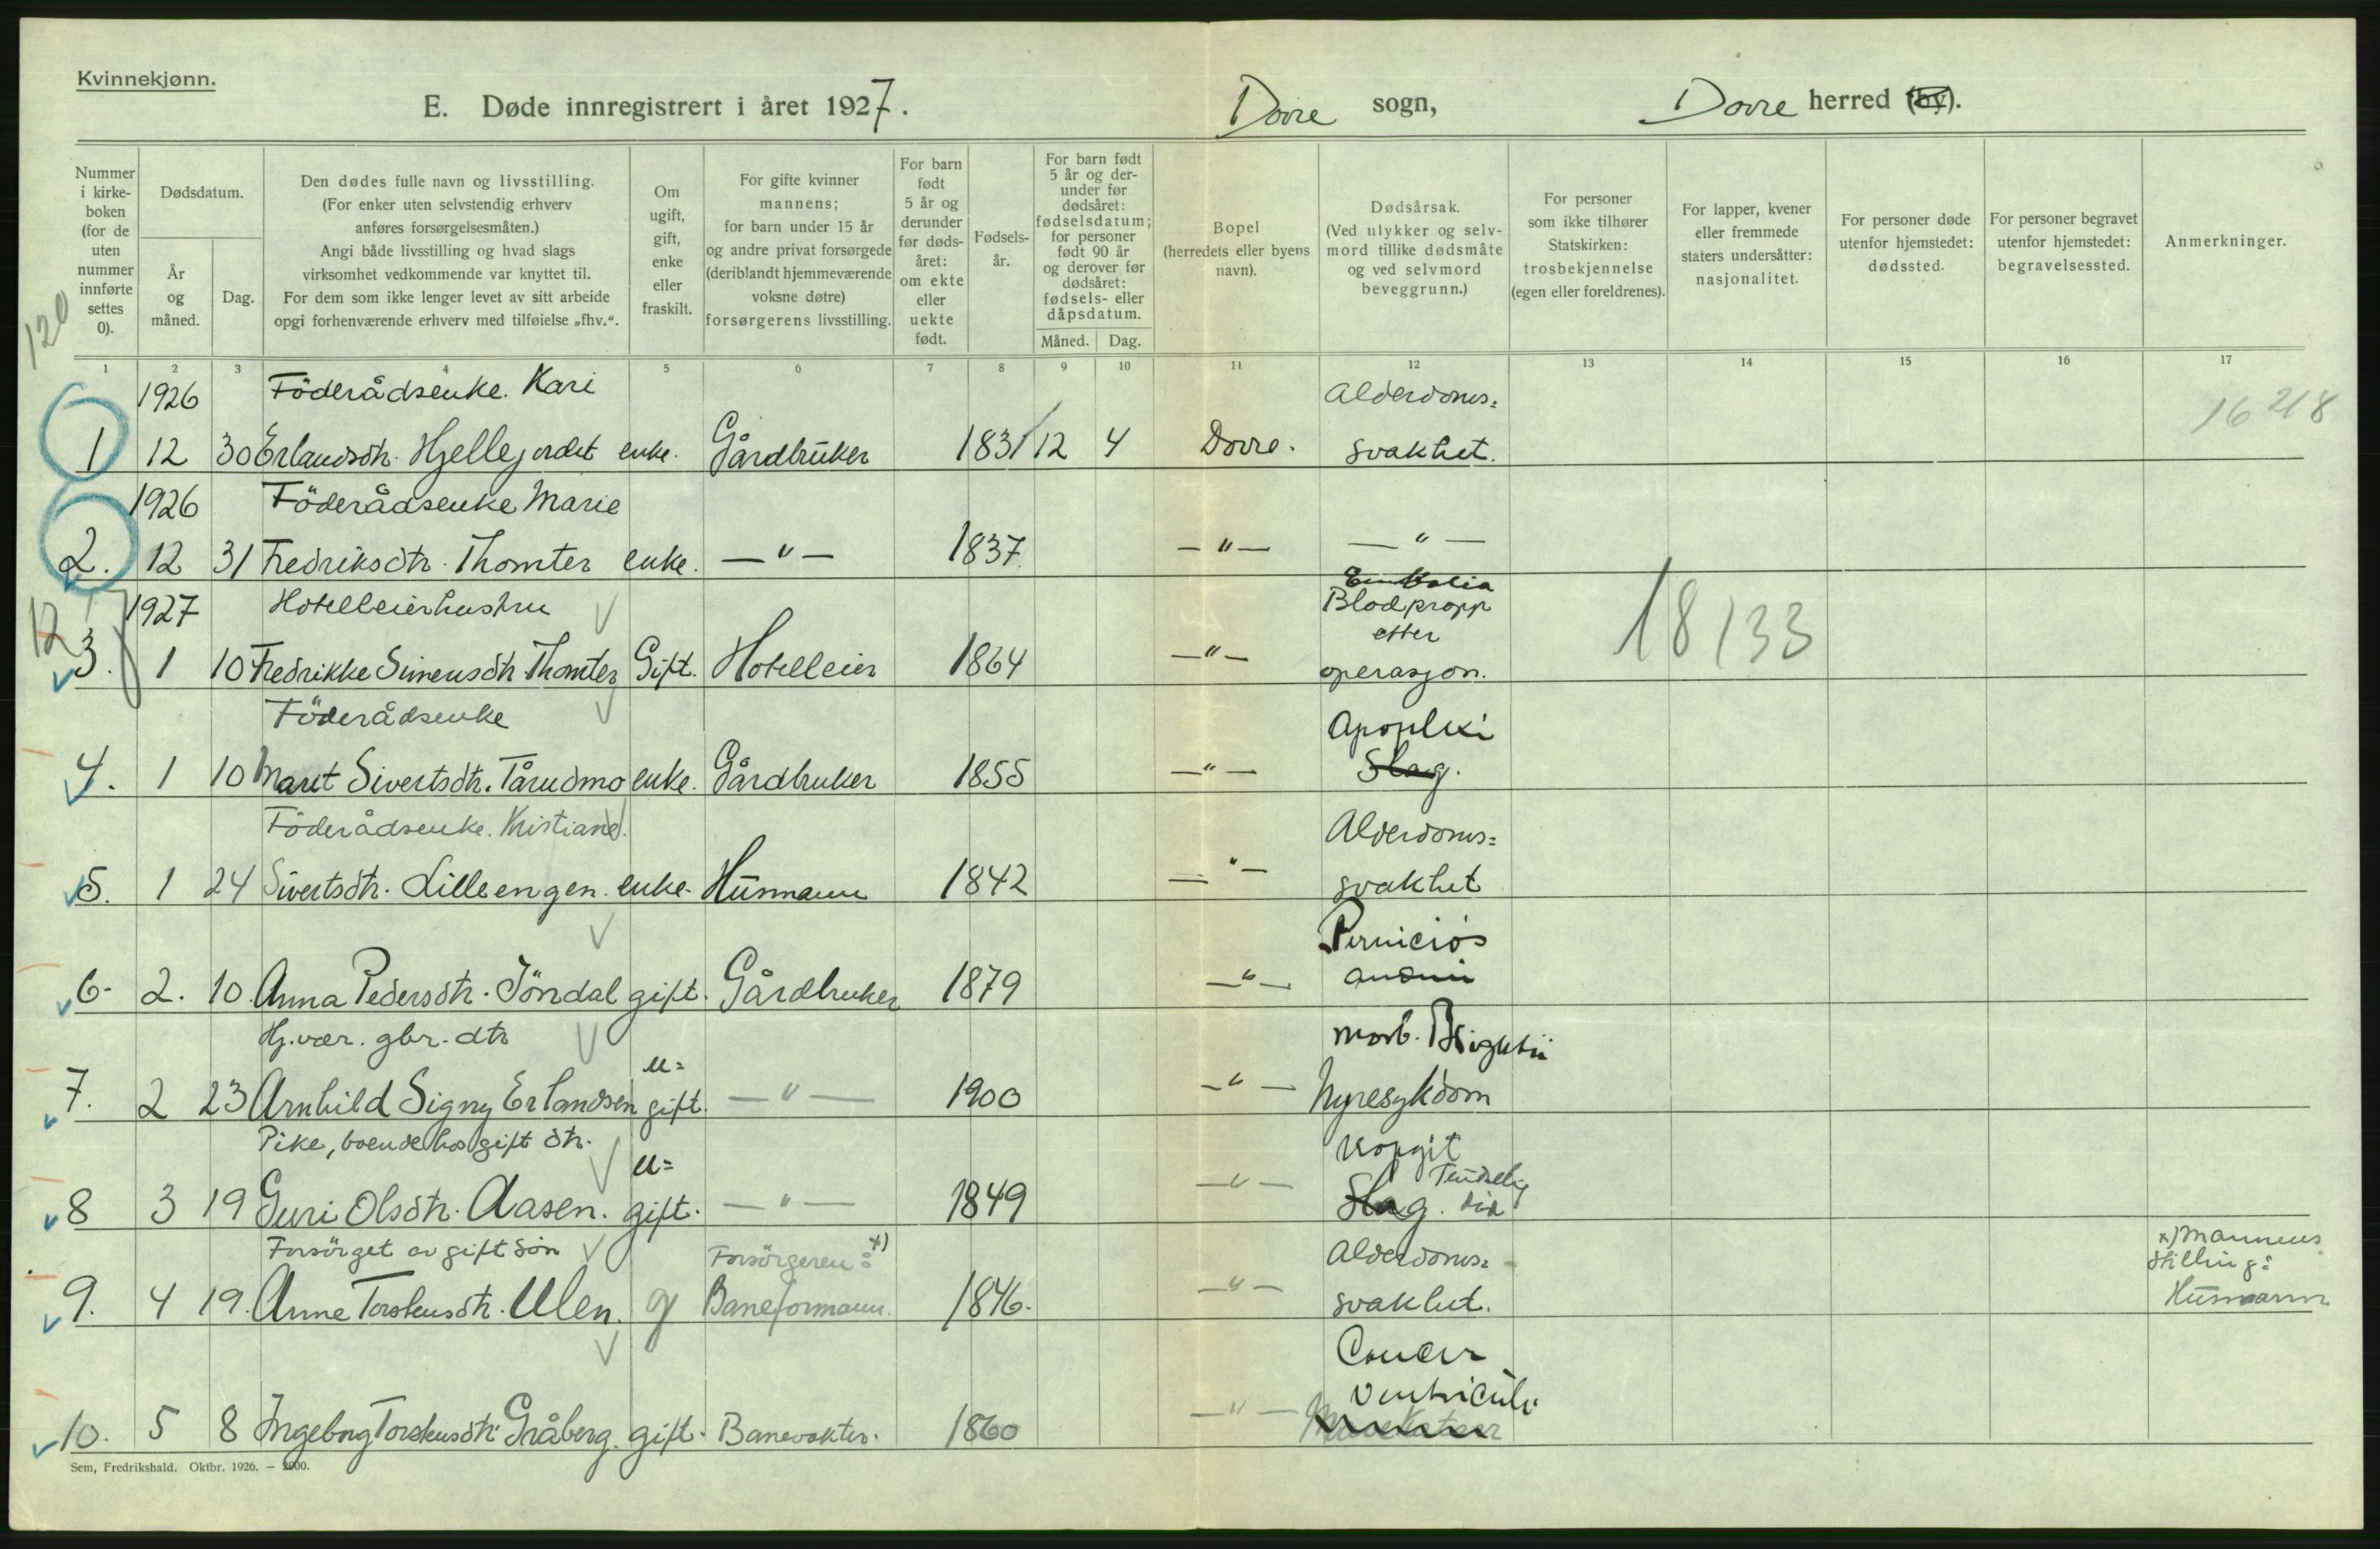 Kvinnekjønn.
E. Døde innregistrert i året 1927.
Dovre sogn, Dovre herred (by).
Nummer i kirke-boken (for de uten nummer innførte settes 0).
Dødsdatum.
År og måned.
Dag.
Den dødes fulle navn og livsstilling.
(For enker uten selvstendig erhverv anføres forsørgelsesmåten.)
Angi både livsstilling og hvad slags virksomhet vedkommende var knyttet til.
For dem som ikke lenger levet av sitt arbeide opgi forhenværende erhverv med tilføielse „fhv.“.
Om ugift, gift, enke eller fraskilt.
For gifte kvinner mannens; for barn under 15 år og andre privat forsørgede (deriblandt hjemmeværende voksne døtre) forsørgerens livsstilling.
For barn født 5 år og derunder før døds-året: om ekte eller uekte født.
Fødsels-år.
For barn født 5 år og der-under før dødsåret: fødselsdatum; for personer født 90 år og derover før dødsåret: fødsels- eller dåpsdatum.
Måned. Dag.
Bopel (herredets eller byens navn).
Dødsårsak.
(Ved ulykker og selv-mord tillike dødsmåte og ved selvmord beveggrunn.)
For personer som ikke tilhører Statskirken: trosbekjennelse (egen eller foreldrenes).
For lapper, kvener eller fremmede staters undersåtter: nasjonalitet.
For personer døde utenfor hjemstedet: dødssted.
For personer begravet utenfor hjemstedet: begravelsessted.
Anmerkninger.
120
1 2 3 4 5 6 7 8 9 10 11 12 13 14 15 16 17
1926 Föderådsenke. Kari Alderdoms= 16218
1 12 30 Erlandsdtr. Hjellejordet enke. Gårdbruker 1831 12 4 Dovre. svakhet.
1926 Föderådsenke Marie
2. 12 31 Fredriksdtr. Thomter enke. —"— 1837. —"— —"—
Embolia
1927 Hotelleierhustru Blodpropp
12 etter 18133
3. 1 10 Fredrikke Simensdtr Thomter Gift. Hotelleier 1864 —"— operasjon.
Föderådsenke Apoplexi
4. 1 10 Marit Sivertsdtr. Tårudmo enke. Gårdbruker 1855 —"— Slag.
Föderådsenke. Kristiane. Alderdoms=
5. 1 24 Sivertsdtr. Lilleengen. enke. Husmann 1842 —"— svakhet
Perniciøs
6. 2. 10. Anna Pedersdtr. Jöndal gift. Gårdbruker 1879 —"— anæmi
Hj.vær. gbr. dtr morb. Brightii
u=
7. 2 23 Arnhild Signy Erlandsen gift. —"— 1900 —"— Nyresykdom
Pike, boende hos gift dtr. uopgit
u= Tendelig
8 3 19 Guri Olsdtr. Aasen. gift. —"— 1849 —"— Slag.
Forsörget av gift sön Forsörgeren: x) Alderdoms= x) Mannens stilling:
9. 4 19. Anne Torstensdtr. Ulen. g Baneformann. 1846. —"— svakhet. Husmann
Cancer
ventriculi
10. 5 8 Ingeborg Torstensdtr. Gråberg. gift. Banevokter. 1860 —"—
Sem, Fredrikshald. Oktbr. 1926. — 2000.